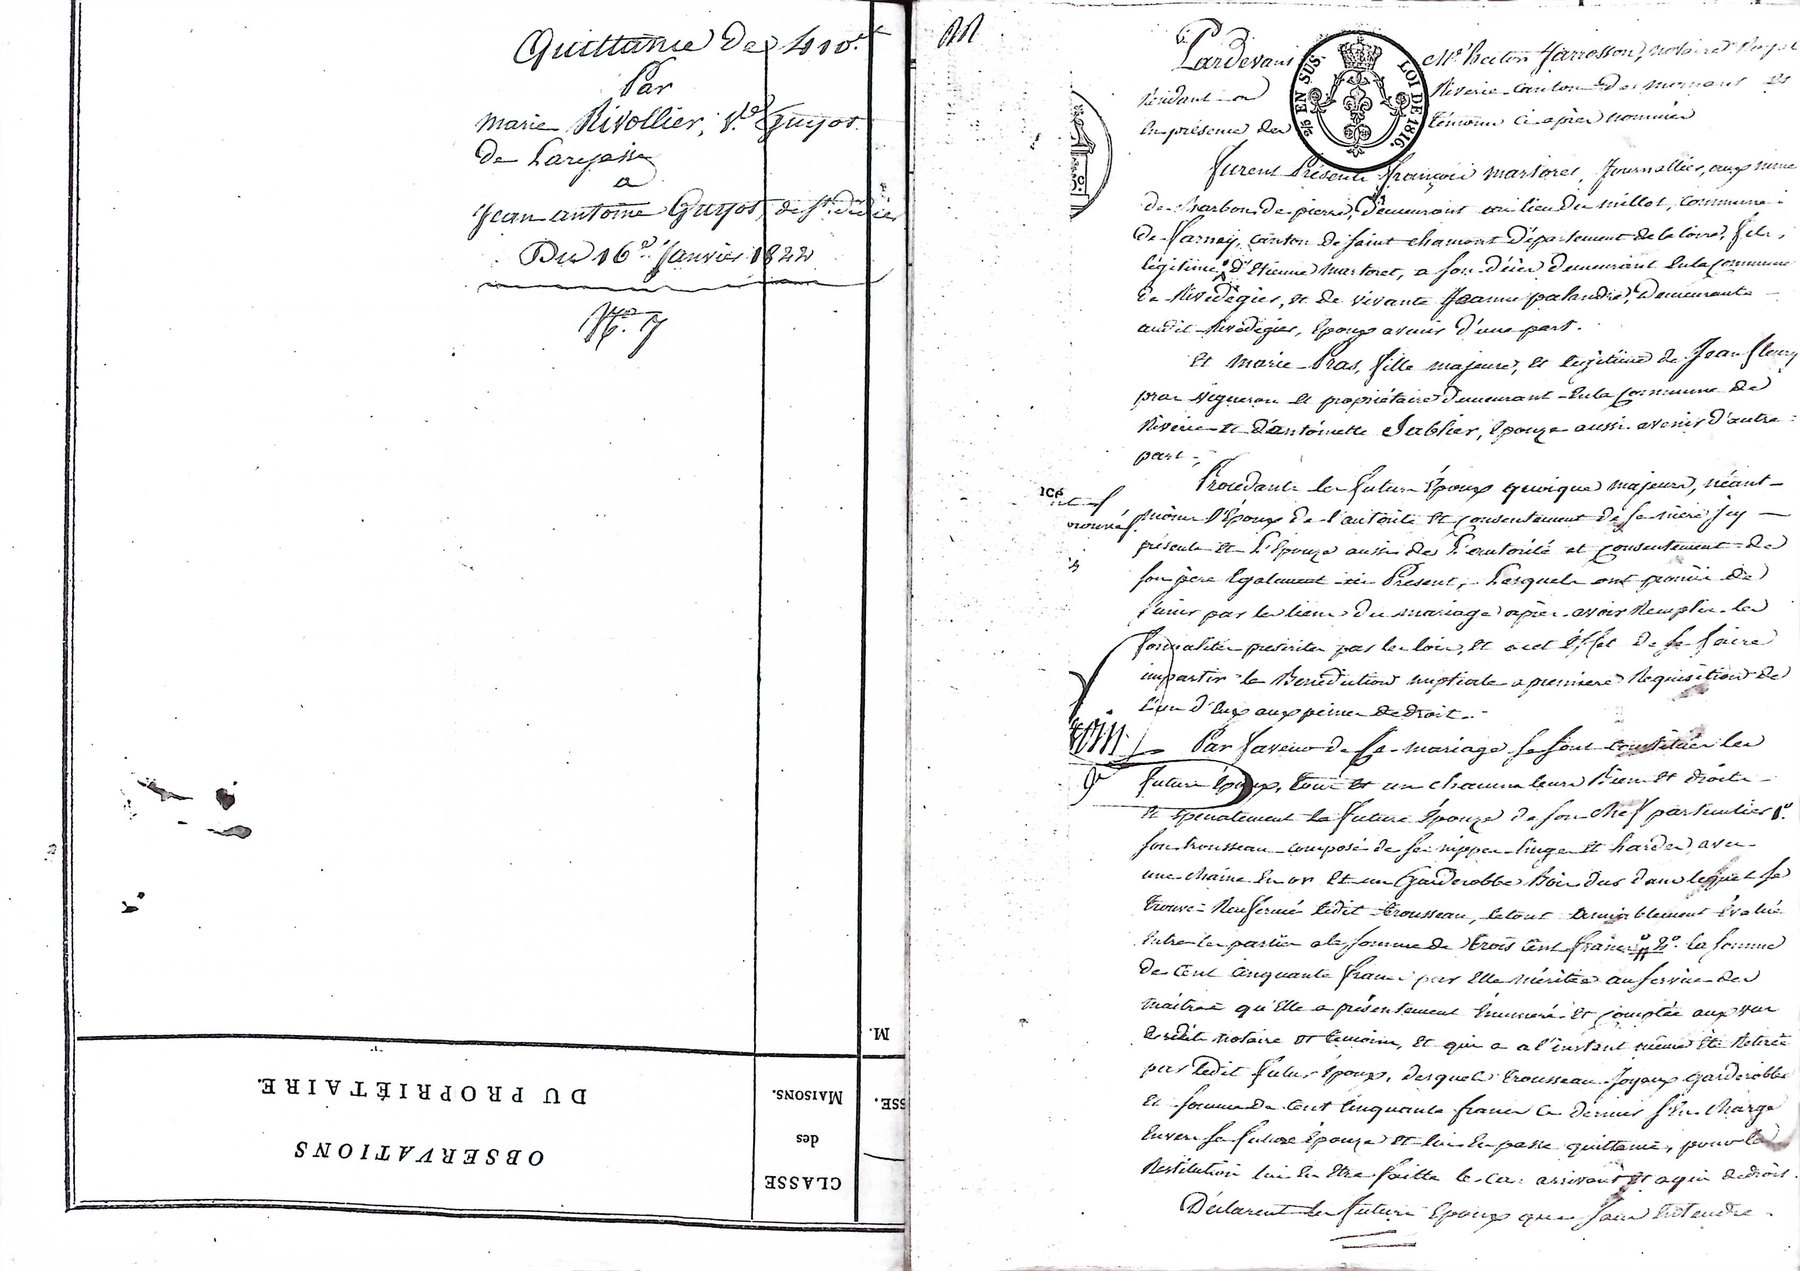 Quittance De 410.f
Par
Marie Rivollier, V.e Guyot
de Larajasse
a
Jean antoine Guyot, de St. didier
Du 16 Janvier 1822
N.o 7
M.
OBSERVATIONS
DU PROPRIÉTAIRE.
CLASSE
des
MAISONS.
SSE.
2/10 EN SUS. LOI DE 1816.
Pardevant Me. Jarrosson, notaire Royal
Résidant a Riverie canton de mornant et
En présence des témoins ci après nommés
Furent Présents françois martoret, Journallier, aux mine
de charbon de pierre, demeurant au lieu du millot, commune
de farnay, canton de saint chamont Département de la loire, fils,
légitime d'Etienne martoret, a son décès demeurant en la Commune
de Rivedegier, et de vivante Jeanne palandre, Demeurante
audit Rivedegier, Epoux avenir d'une part.
Et marie Pras, fille majeure, et légitime de Jean fleury
pras vigneron et propriétaire demeurant en la Commune de
Riverie et d'antoinette Jablier, Epouze aussi avenir d'autre
part.
Procédants les futurs Epoux quoique majeurs, néant-
moins l'Epoux de l'autorité et consentement de sa mère icy
présente et L'Epouze aussi de L'autorité et Consentement de
son père Egalement ici Présent, Lesquels ont promis de
s'unir par les liens du mariage après avoir Remplis les
formalités prescrites par les lois, et a cet Effet de se faire
impartir la Bénédiction nuptiale a première Requisition de
L'un d'Eux aux peines de droit.
Par faveur de Ce mariage se sont constitués les
futurs Epoux, tous et un chacun leurs Biens et droits
Et spécialement la future Epouze de son chef particulier 1.o
son trousseau composé de ses nippes linges et hardes, avec
une chaine En or et un Garderobbe Bois dur dans lequel se
trouve Renfermé ledit trousseau, le tout amiablement Evalué
Entre les parties a la somme de trois Cent francs 2.o la somme
de Cent Cinquante francs par Elle méritée au service des
maitres qu'Elle a présentement Enumeré et Comptée aux vue
desdits notaire et témoins, et qui a a l'instant même Eté Retirée
par ledit futur Epoux, desquels trousseau Joyaux garderobbe
Et somme de Cent Cinquante francs Ce dernier s'En charge
Envers sa future Epouze et lui En passe quittance, pour la
Restitution lui En Etre faitte le cas arrivant et a qui de droit.
Déclarent les futurs Epoux que sans Entendre